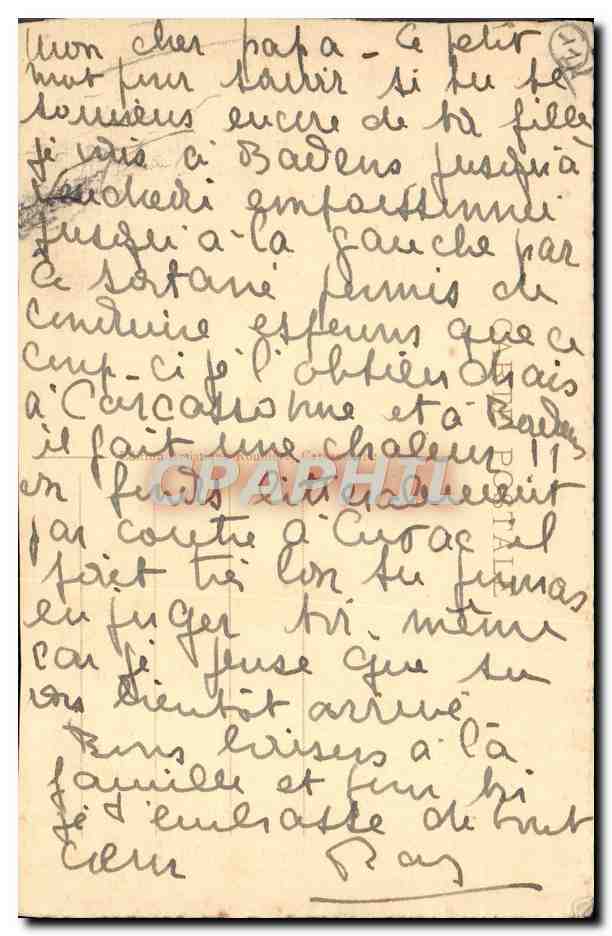 mon cher papa - Ce petit
mot pour savoir si tu te
souviens encore de ta fille
je suis à Badens jusqu'à
vendredi
jusqu'à la gauche par
Ce permis de
conduire esperons que ce
coup-ci je l'obtiendrais
à Carcassonne et à Badens
il fait une chaleur !!
on fonds litteralement
par contre à Cuxac il
fait très bon tu pourras
en juger toi même
car je pense que tu
vas bientôt arrivé
Bons baisers à la
famille et pour toi
je t'embrasse de tout
coeur
CARTE POSTALE
CPARHIL